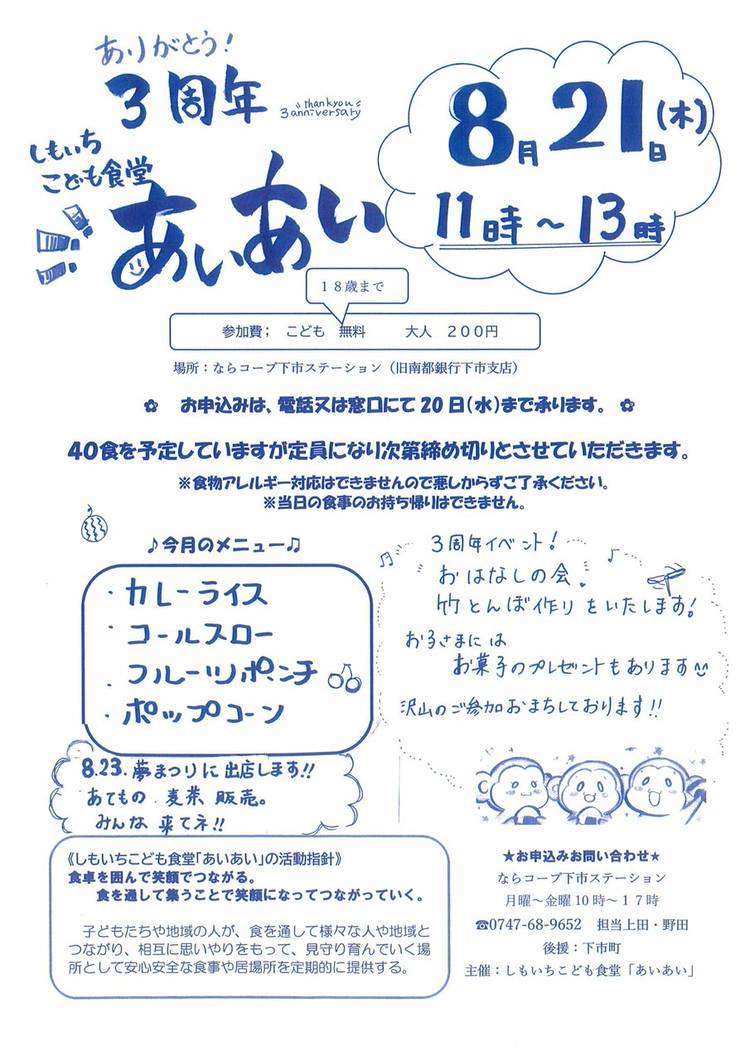 ありがとう!
3周年
thankyou
3anniversary
しもいち
こども食堂
あいあい
8月21日(木)
11時〜13時
18歳まで
参加費; こども 無料 大人 200円
場所:ならコープ下市ステーション(旧南都銀行下市支店)
✿ お申込みは、電話又は窓口にて20日(水)まで承ります。 ✿
40食を予定していますが定員になり次第締め切りとさせていただきます。
※食物アレルギー対応はできませんので悪しからずご了承ください。
※当日の食事のお持ち帰りはできません。
♪今月のメニュー♫
・カレーライス
・コールスロー
・フルーツポンチ
・ポップコーン
3周年イベント!
おはなしの会、
竹とんぼ作りをいたします!
お子さまには
お菓子のプレゼントもあります
沢山のご参加おまちしております!!
8.23.夢まつりに出店します!!
あてもの 麦茶 販売。
みんな 来てネ!!
《しもいちこども食堂「あいあい」の活動指針》
食卓を囲んで笑顔でつながる。
食を通して集うことで笑顔になってつながっていく。
子どもたちや地域の人が、食を通して様々な人や地域と
つながり、相互に思いやりをもって、見守り育んでいく場
所として安心安全な食事や居場所を定期的に提供する。
★お申込みお問い合わせ★
ならコープ下市ステーション
月曜〜金曜10時〜17時
☎0747-68-9652 担当上田・野田
後援:下市町
主催:しもいちこども食堂「あいあい」